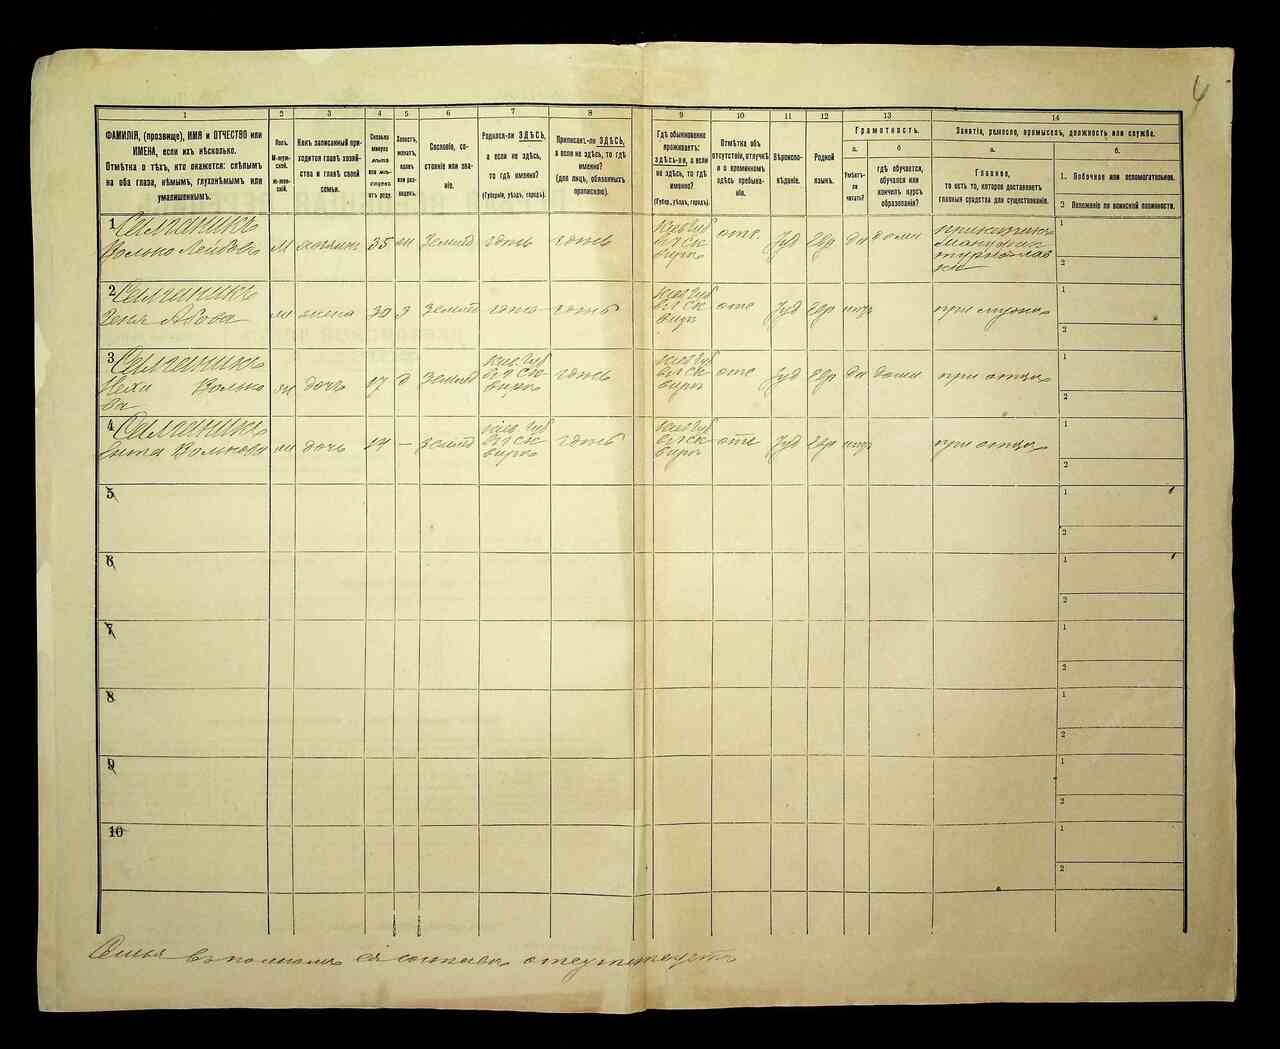 4
1
2
3
4
5
6
7
8
9
10
11
12
13
14
ФАМИЛІЯ, (прозвище), ИМЯ и ОТЧЕСТВО или
ИМЕНА, если ихъ нѣсколько.
Отмѣтка о тѣхъ, кто окажется: слѣпымъ
на оба глаза, нѣмымъ, глухонѣмымъ или
умалишеннымъ.
Полъ.
М-муж-
ской.
Ж-жен-
скій.
Какъ записанный при-
ходится главѣ хозяй-
ства и главѣ своей
семьи.
Сколько
минуло
лѣтъ
или мѣ-
сяцевъ
отъ роду.
Холостъ,
женатъ,
вдовъ
или раз-
веденъ.
Сословіе, со-
стояніе или зва-
ніе.
Родился-ли ЗДѢСЬ,
а если не здѣсь,
то гдѣ именно?
(Губернія, уѣздъ, городъ).
Приписанъ-ли ЗДѢСЬ,
а если не здѣсь, то гдѣ
именно?
(для лицъ, обязанныхъ
припискою).
Гдѣ обыкновенно
проживаетъ:
здѣсь-ли, а если
не здѣсь, то гдѣ
именно?
(Губер., уѣздъ, городъ).
Отмѣтка объ
отсутствіи, отлучкѣ
и о временномъ
здѣсь пребыва-
ніи.
Вѣроиспо-
вѣданіе.
Родной
языкъ.
Грамотность.
а.
Умѣетъ-
ли
читать?
б
гдѣ обучается,
обучался или
кончилъ курсъ
образованія?
Занятія, ремесло, промыселъ, должность или служба.
а.
Главное,
то есть то, которое доставляетъ
главныя средства для существованія.
б.
1. Побочное или вспомогательное.
2 Положеніе по воинской повинности.
1 Салганикъ
Волько Лейбовъ М хозяинъ 35 ж здѣсь здѣсь Кіев Губ отс. Іуд Евр да дома
1
2
2 Салганикъ
жена 30 з здѣсь здѣсь Кіев Губ отс Іуд Евр при мужѣ
1
2
3 Салганикъ
дочь 17 Кіев Губ здѣсь Кіев Губ отс Іуд Евр да дома при отцѣ
1
2
4 Салганикъ
Волькова дочь 14 — Кіев Губ здѣсь Кіев Губ отс Іуд Евр при отцѣ
1
2
5
1
2
6
1
2
7
1
2
8
1
2
9
1
2
10
1
2
Семья въ полномъ составѣ отсутствуетъ